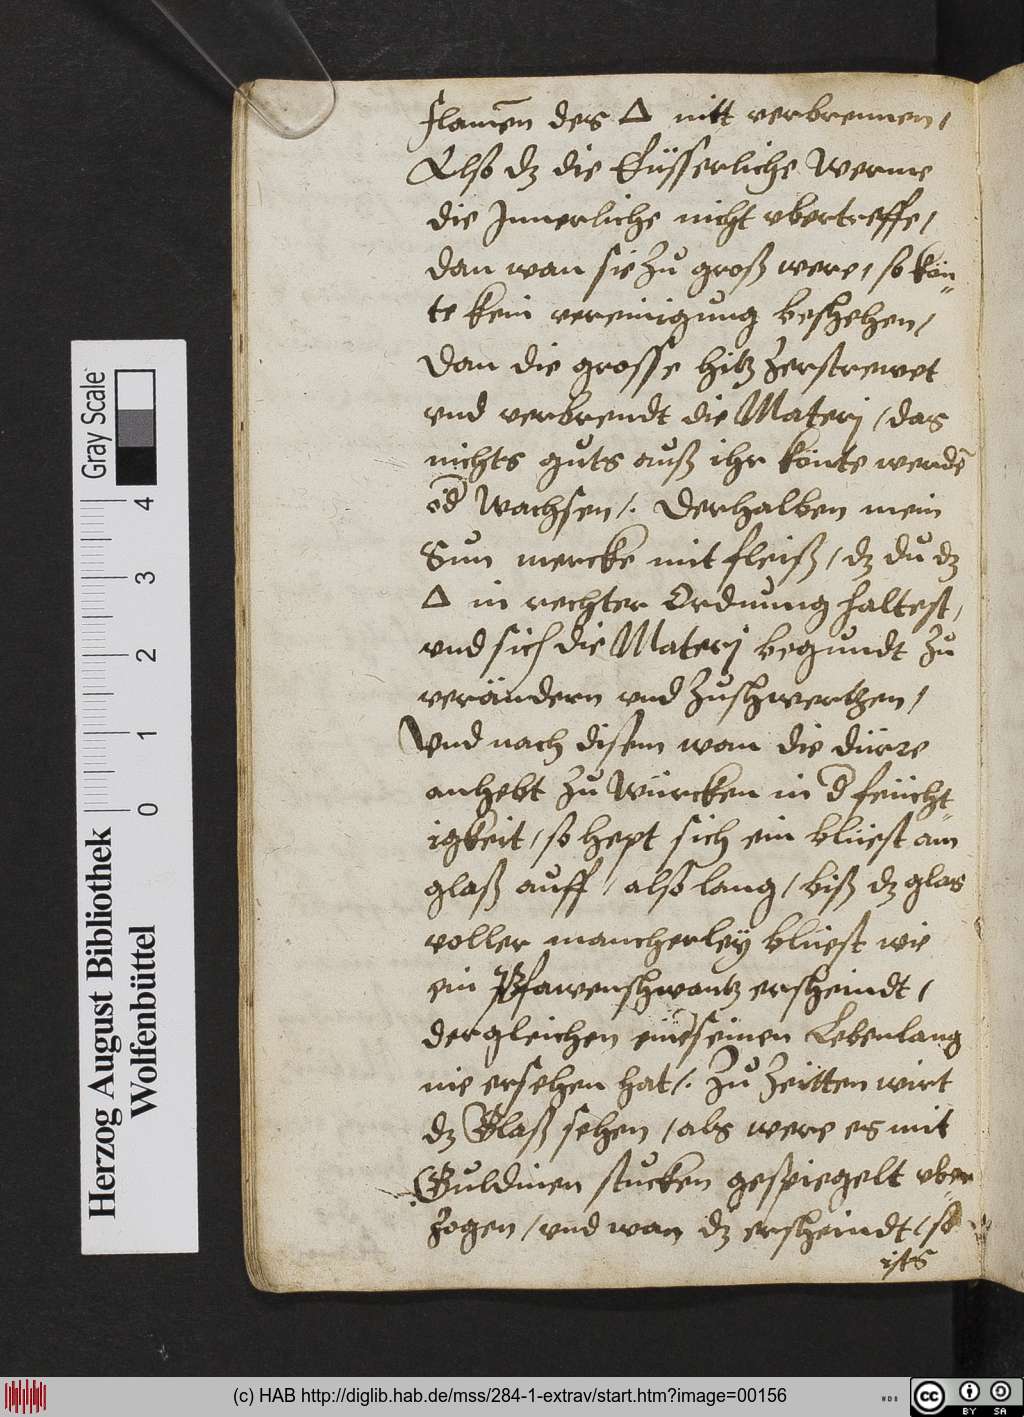 flam̄en des 🜂 nitt verbrennen,
Also dz die Eüsserliche Werme
die Innerliche nicht vbertreffe,
dan wan sie zu groß were, so kön„
te kein vereinigung beschehen,
dan die grosse hitz zerstrewet
vnd verbrendt die Materj, das
nichts guts auß ihr könte werdē
od̄ wachsen,. Derhalben mein
Sun mercke mit fleiß, dz du dz
🜂 in rechter Ordnung haltest,
vnd sich die Materj begundt zu
verändern vnd zuschwertzen,
Vnd nach disem wan die dürre
anhebt zu Würcken in d̄ feücht„
igkeit, so hept sich ein blüest am
glaß auff, also lang, biß dz glas
voller mancherley blüest wie
ein Pfawenschwantz erscheindt,
dergleichen einer seinen Lebenlang
nie ersehen hat,. Zu Zeitten wirt
dz Glaß sehen, als were es mit
Guldinen stucken gespiegelt vber„
zogen, vnd wan dz erscheindt, so
ists
Gray Scale
4
3
2
1
0
Herzog August Bibliothek
Wolfenbüttel
(c) HAB http://diglib.hab.de/mss/284-1-extrav/start.htm?image=00156
WDB
cc BY SA